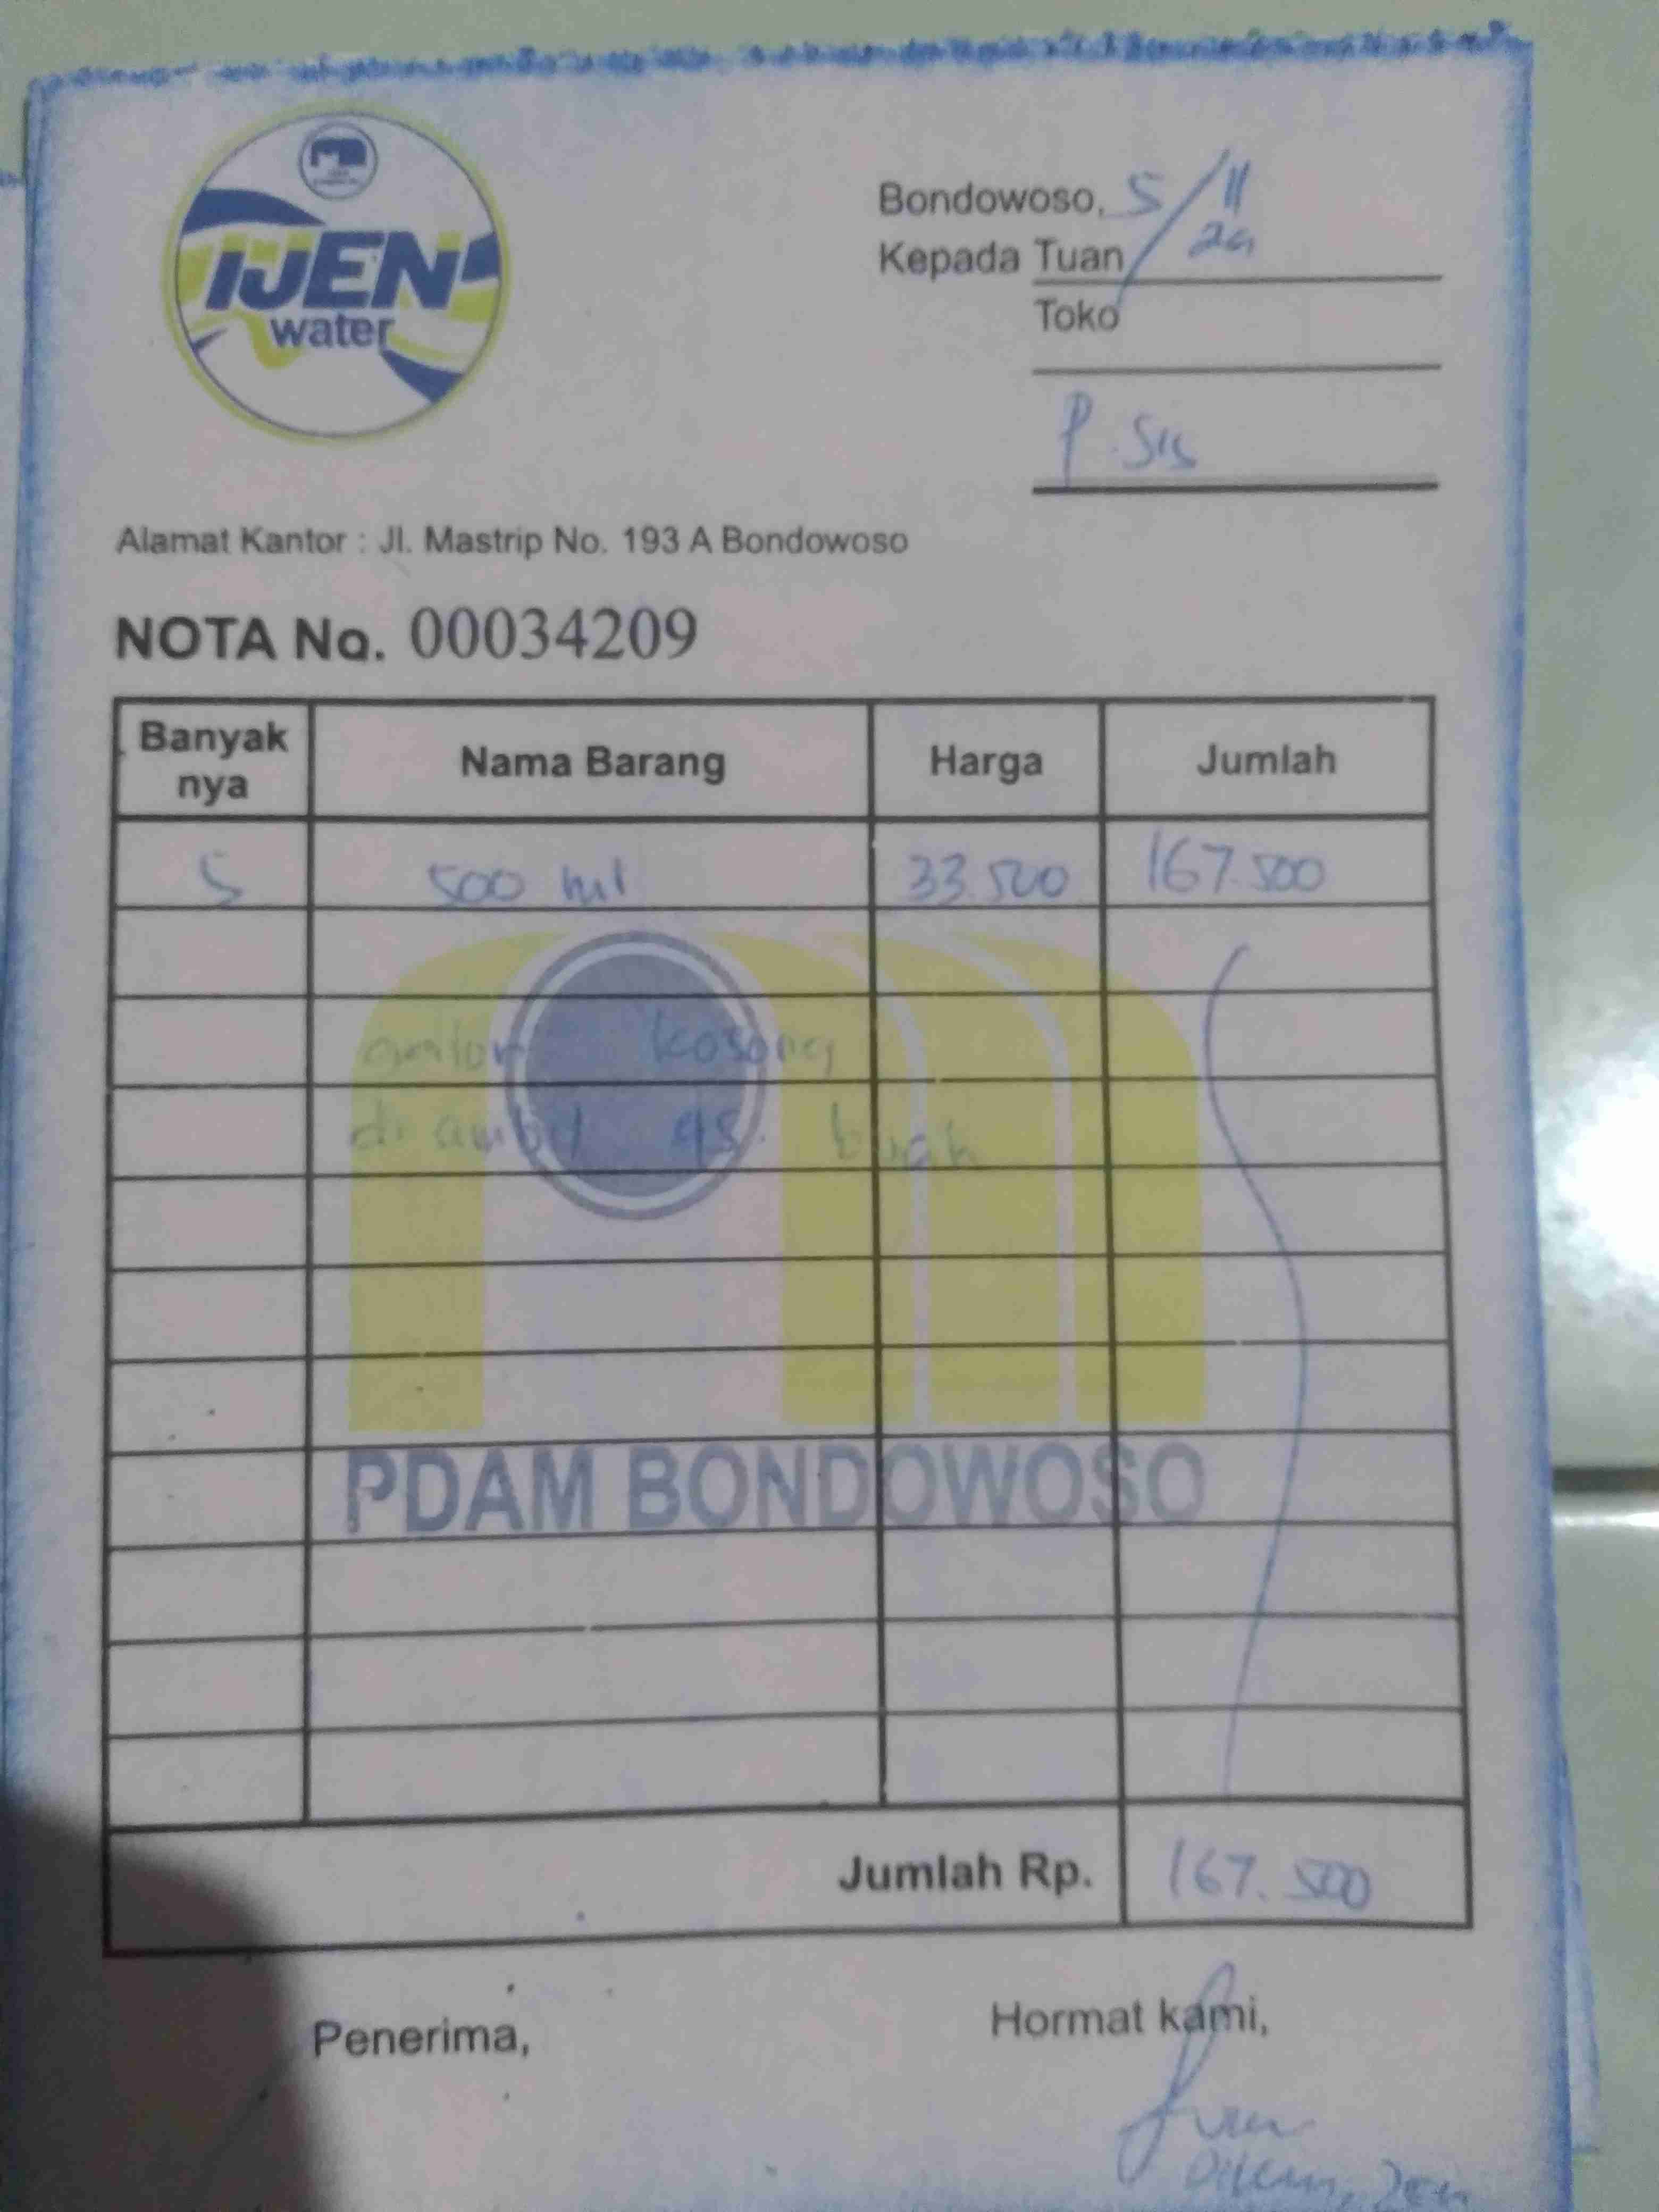 IJEN
water
Bondowoso, 5/11
24
Kepada Tuan
Toko
P. Sis
Alamat Kantor : Jl. Mastrip No. 193 A Bondowoso
NOTA No. 00034209
Banyak nya Nama Barang Harga Jumlah
5 500 ml 33.500 167.500
galon kosong
di ambil 45 buah
PDAM BONDOWOSO
Jumlah Rp. 167.500
Penerima, Hormat kami,